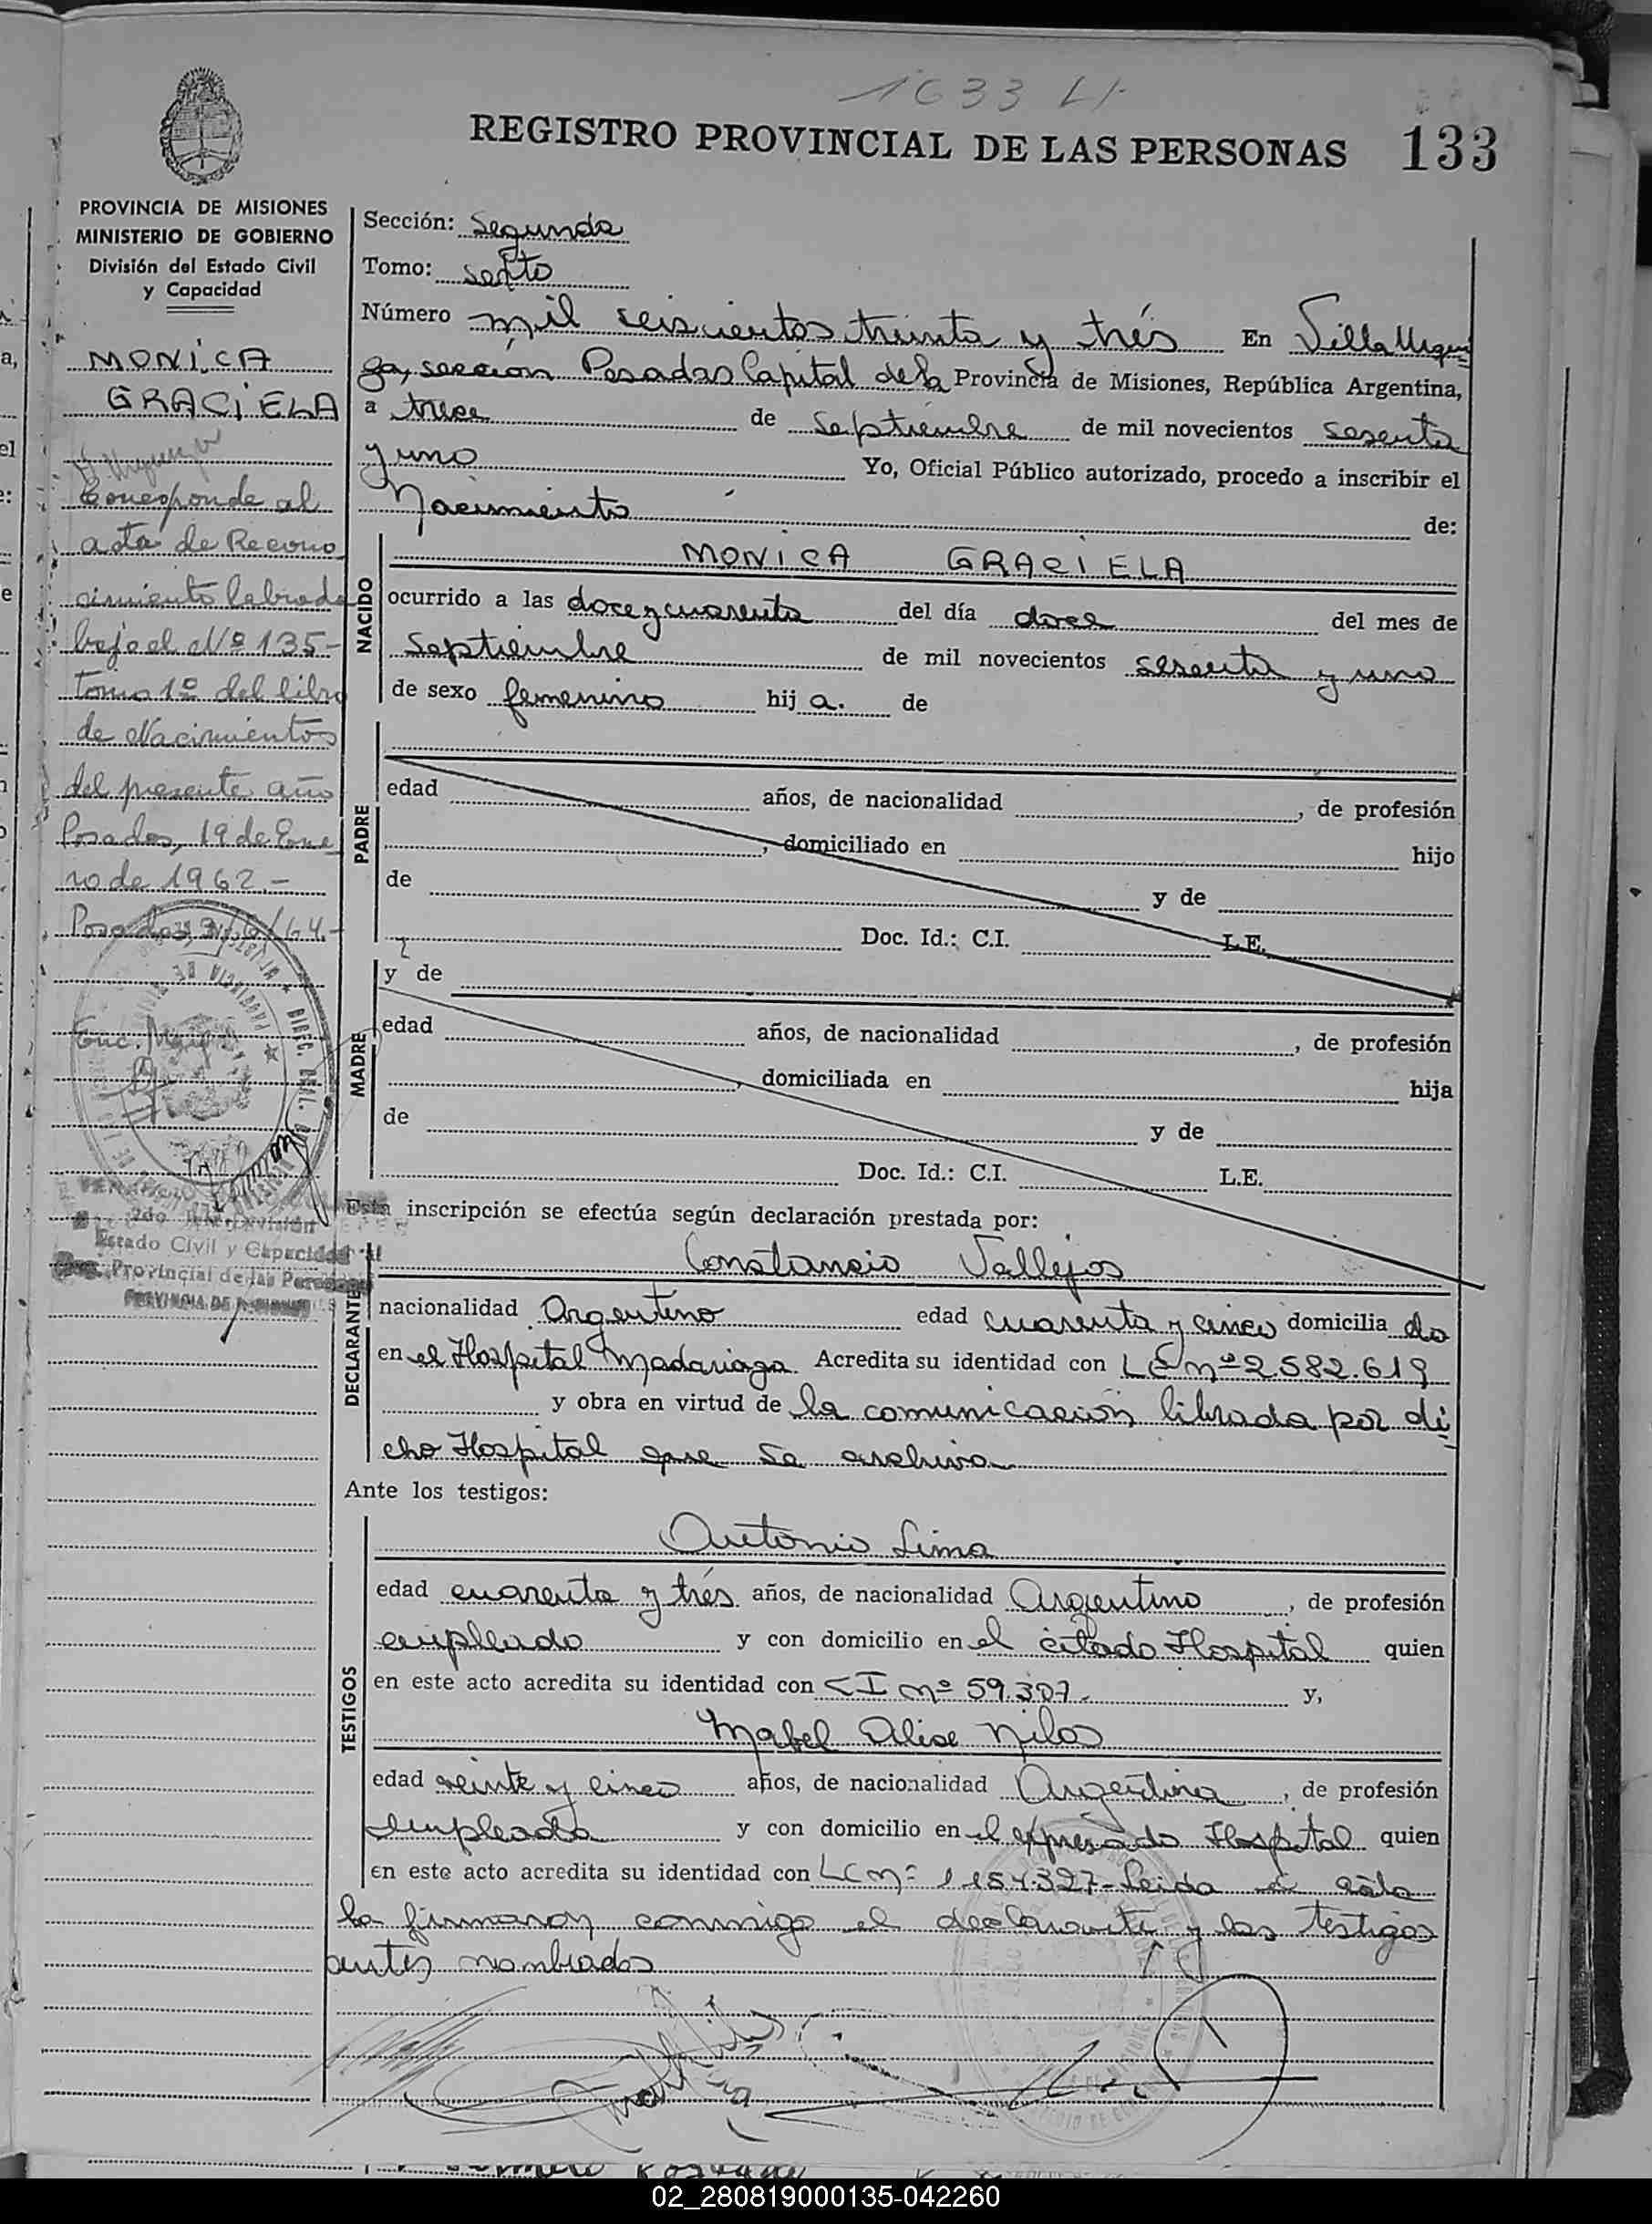 1633
REGISTRO PROVINCIAL DE LAS PERSONAS 133
PROVINCIA DE MISIONES
MINISTERIO DE GOBIERNO
División del Estado Civil
y Capacidad
MONICA
GRACIELA
Corresponde al
acta de Recono
cimiento labrada
bajo el Nº 135-
Tomo 1º del libro
de Nacimientos
del presente año
Posadas, 19 de Ene
ro de 1962.-
Estado Civil y Capacidad
Provincial de las Personas
PROVINCIA DE MISIONES
Sección: Segunda
Tomo: sexto
Número mil seiscientos treinta y trés En Villa Urqui
za, sección Posadas Capital de la Provincia de Misiones, República Argentina,
a trece de Septiembre de mil novecientos sesenta
y uno Yo, Oficial Público autorizado, procedo a inscribir el
Nacimiento de:
NACIDO
MONICA GRACIELA
ocurrido a las doce y cuarenta del día doce del mes de
Septiembre de mil novecientos sesenta y uno
de sexo femenino hij a. de
PADRE
edad años, de nacionalidad , de profesión
, domiciliado en hijo
de y de
Doc. Id.: C.I. L.E.
MADRE
y de
edad años, de nacionalidad , de profesión
, domiciliada en hija
de y de
Doc. Id.: C.I. L.E.
Esta inscripción se efectúa según declaración prestada por:
DECLARANTE
Constancio Vallejos
nacionalidad Argentino edad cuarenta y cinco domicilia do
en el Hospital Madariaga Acredita su identidad con LE nº 2.582.619
y obra en virtud de la comunicación librada por di
cho Hospital que se archiva
Ante los testigos:
TESTIGOS
Antonio Lima
edad cuarenta y trés años, de nacionalidad Argentino , de profesión
empleado y con domicilio en el citado Hospital quien
en este acto acredita su identidad con CI nº 59.307.- y,
Mabel Alise
edad veinte y cinco años, de nacionalidad Argentina , de profesión
empleada y con domicilio en el expresado Hospital quien
en este acto acredita su identidad con LC nº Leida el acta
la firmaron conmigo el declarante y los testigos
antes nombrados
02_280819000135-042260